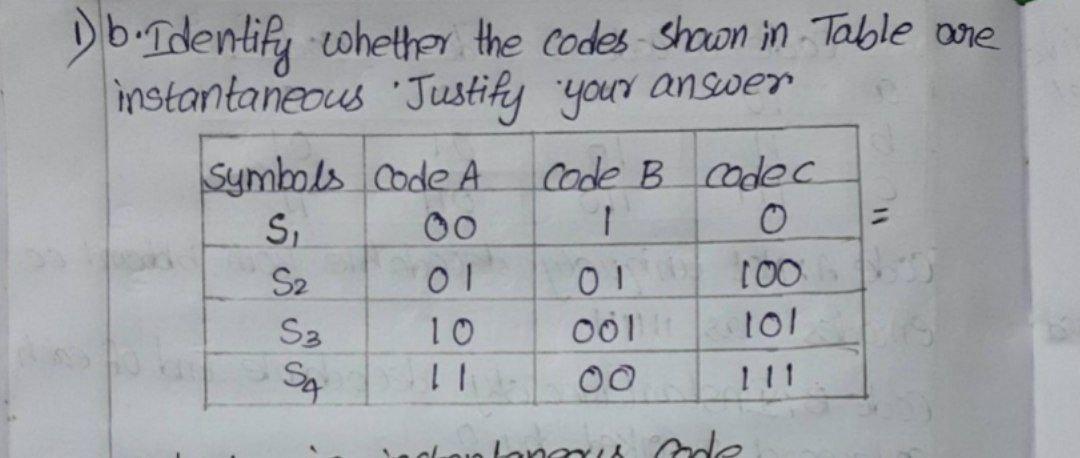 1) b. Identify whether the codes shown in Table are
instantaneous. Justify your answer
Symbols Code A Code B code C
S1 00 1 0 =
S2 01 01 100
S3 10 001 101
S4 11 00 111
instantaneous code